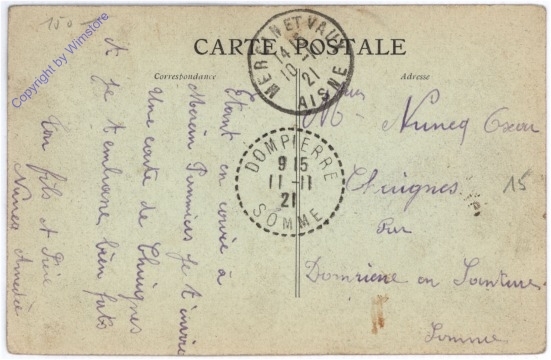 150
Copyright by Wimstore
CARTE POSTALE
Correspondance
Adresse
MERLIN ET VAUX
14
10 - 10
21
AISNE
DOMPIERRE
9 15
11 - 11
21
SOMME
Etant en corvée à
je t'envoie
Une carte de Chuignes
A je t'embrasse bien fort
Ton fils et Frère
Nuncq Amédée
Nuncq
Chuignes
Par
Dompierre en Santerre
Somme
15